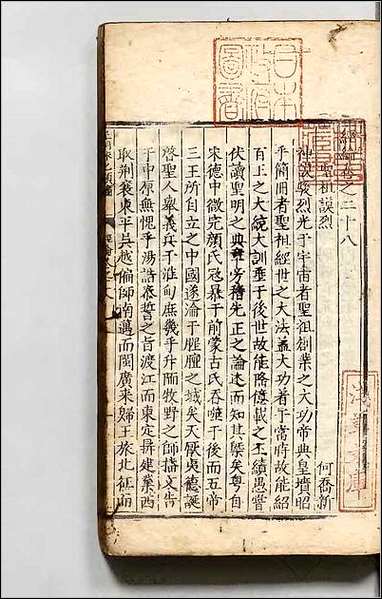 卷之二十八
聖祖謨烈
何喬新
神謨駿烈光于宇宙者聖祖創業之大功帝典皇墳昭
乎簡冊者聖祖經世之大法蓋大功著于當時故能紹
百王之大統大訓垂于後世故能隆億載之丕績愚嘗
伏讀聖明之典章旁稽先正之論述而知其槩矣粵自
宋德中微完顏氏冦暴于前蒙古氏吞噬于後而五帝
三王所自立之中國遂淪于腥膻之域矣天厭夷德誕
啓聖人舉義兵于淮甸庶幾乎升陑牧野之師播文告
于中原無愧乎湯誥泰誓之旨渡江而東定鼎建業西
取荆襄東平吳越偏師南邁而閩廣來歸王旅北征而
日本
政府
圖書
淺草文庫